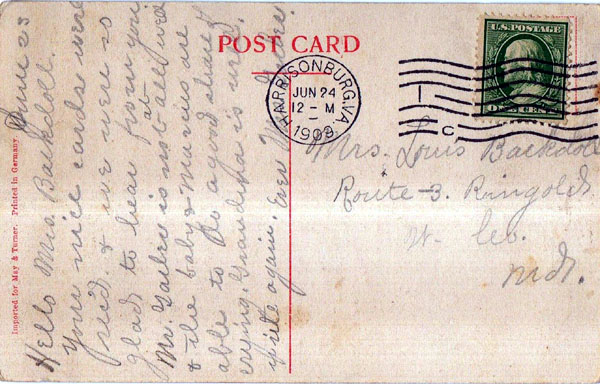 POST CARD
U.S. POSTAGE
HARRISONBURG, VA.
JUN 24
12-M
1909
1
C
Mrs. Louis Backdoll
Route-3. Ringold
W. Co.
Md.
Imported for May & Turner. Printed in Germany.
June 23
Hello Mrs. Backdoll.
Your nice cards were
rec'd. & we were so
glad to hear from you
Mr. is not at all well
& the baby & nerves are
able to do a good deal of
crying. Grandma is well.
write again. Ever